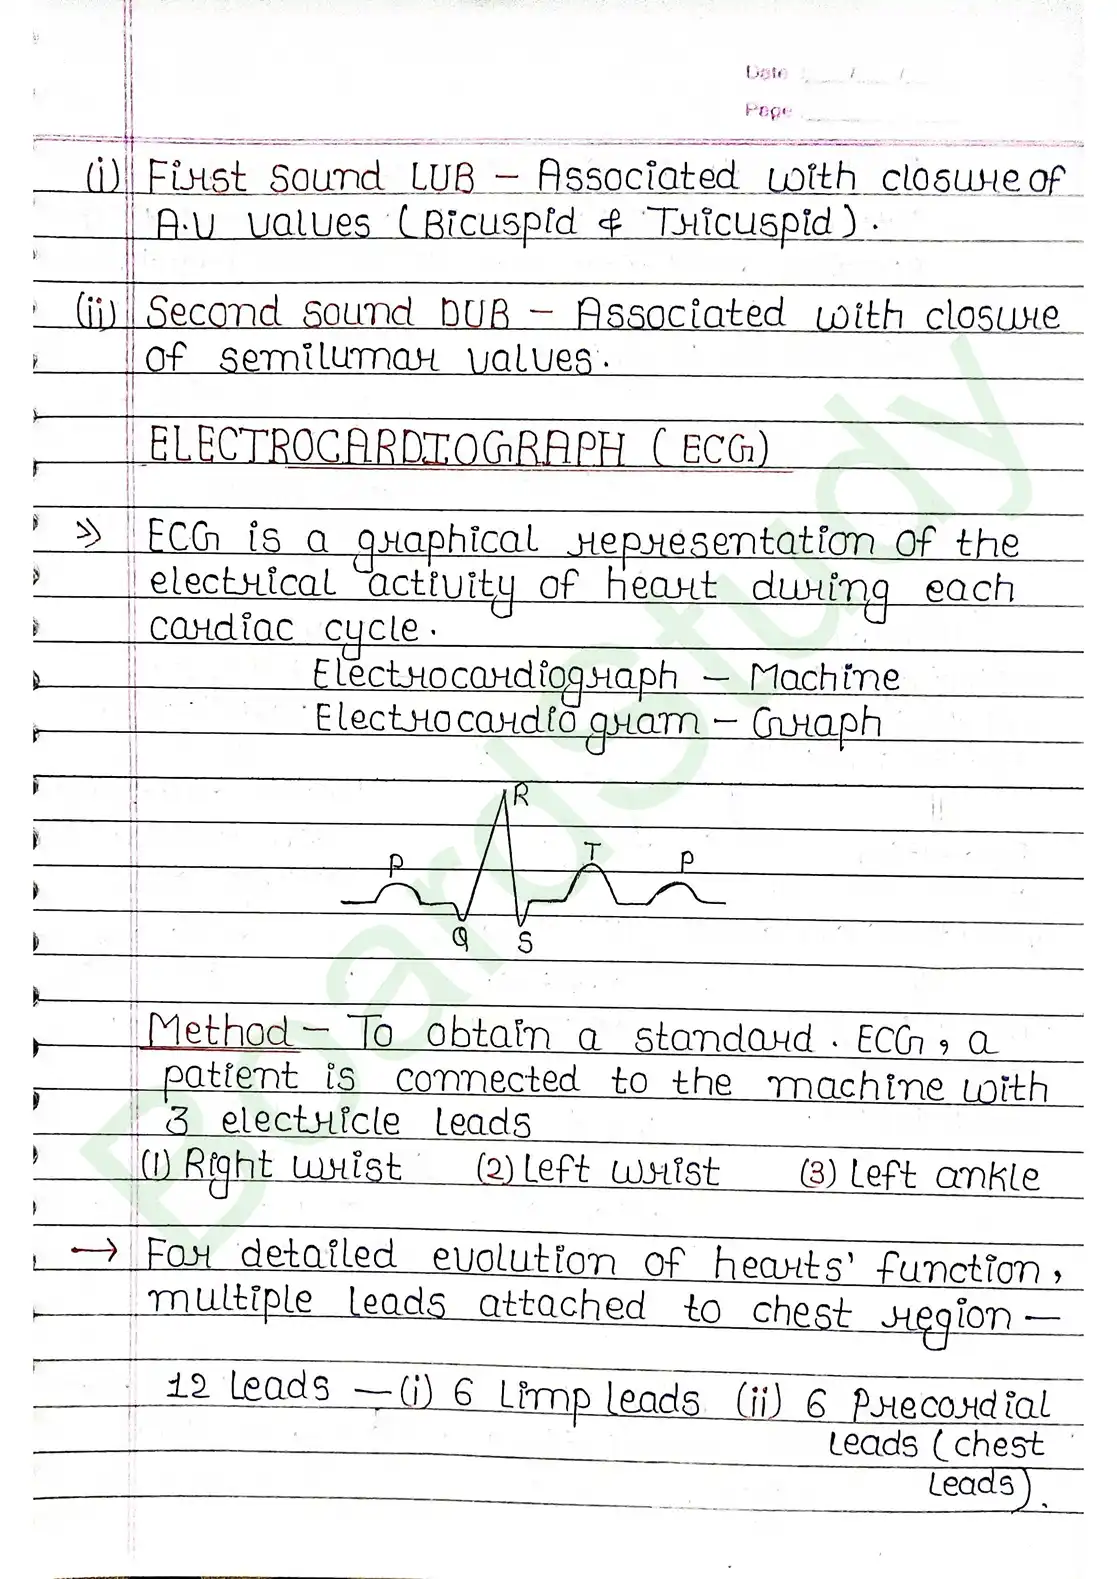 Date : __/__/__
Page
(i) First sound LUB – Associated with closure of
A.V values (Bicuspid & Tricuspid).
(ii) Second sound DUB – Associated with closure
of semilumar values.
ELECTROCARDIOGRAPH (ECG)
>> ECG is a graphical representation of the
electrical activity of heart during each
cardiac cycle.
Electrocardiograph – Machine
Electrocardio gram – Graph
R
P
T
P
Q
S
Method – To obtain a standard . ECG, a
patient is connected to the machine with
3 electricle leads
(1) Right wrist (2) Left wrist (3) Left ankle
→ For detailed evolution of hearts' function,
multiple leads attached to chest region –
12 Leads – (i) 6 Limp leads (ii) 6 Precordial
Leads (chest
Leads).
BoardStudy